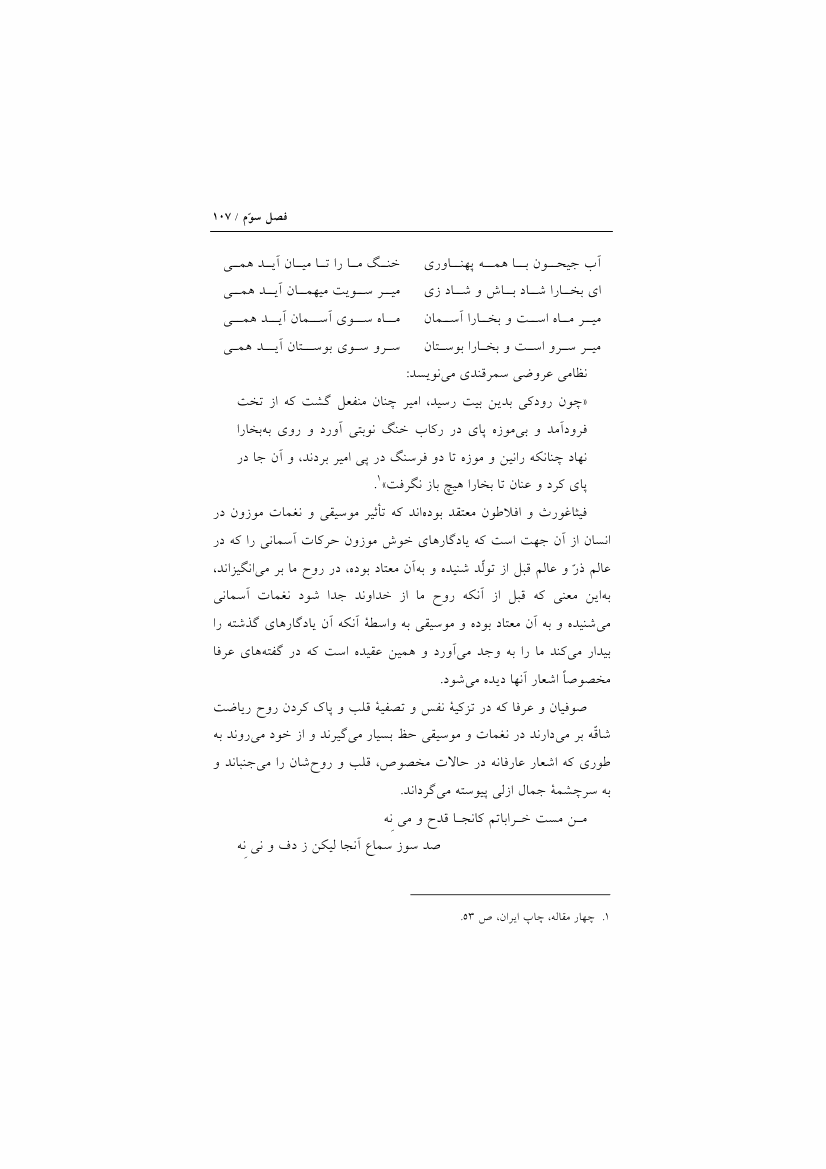 فصل سوّم / ۱۰۷
آب جیحون با همه پهناوری خنگ ما را تا میان آید همی
ای بخارا شاد باش و شاد زی میر سویت میهمان آید همی
میر ماه است و بخارا آسمان ماه سوی آسمان آید همی
میر سرو است و بخارا بوستان سرو سوی بوستان آید همی
نظامی عروضی سمرقندی می‌نویسد:
«چون رودکی بدین بیت رسید، امیر چنان منفعل گشت که از تخت
فرودآمد و بی‌موزه پای در رکاب خنگ نوبتی آورد و روی به‌بخارا
نهاد چنانکه رانین و موزه تا دو فرسنگ در پی امیر بردند، و آن جا در
پای کرد و عنان تا بخارا هیچ باز نگرفت»۱.
فیثاغورث و افلاطون معتقد بوده‌اند که تأثیر موسیقی و نغمات موزون در
انسان از آن جهت است که یادگارهای خوش موزون حرکات آسمانی را که در
عالم ذرّ و عالم قبل از تولّد شنیده و به‌آن معتاد بوده، در روح ما بر می‌انگیزاند،
به‌این معنی که قبل از آنکه روح ما از خداوند جدا شود نغمات آسمانی
می‌شنیده و به آن معتاد بوده و موسیقی به واسطۀ آنکه آن یادگارهای گذشته را
بیدار می‌کند ما را به وجد می‌آورد و همین عقیده است که در گفته‌های عرفا
مخصوصاً اشعار آنها دیده می‌شود.
صوفیان و عرفا که در تزکیۀ نفس و تصفیۀ قلب و پاک کردن روح ریاضت
شاقّه بر می‌دارند در نغمات و موسیقی حظ بسیار می‌گیرند و از خود می‌روند به
طوری که اشعار عارفانه در حالات مخصوص، قلب و روح‌شان را می‌جنباند و
به سرچشمۀ جمال ازلی پیوسته می‌گرداند.
من مست خراباتم کانجا قدح و می نِه
صد سوز سماع آنجا لیکن ز دف و نی نِه
۱. چهار مقاله، چاپ ایران، ص ۵۳.